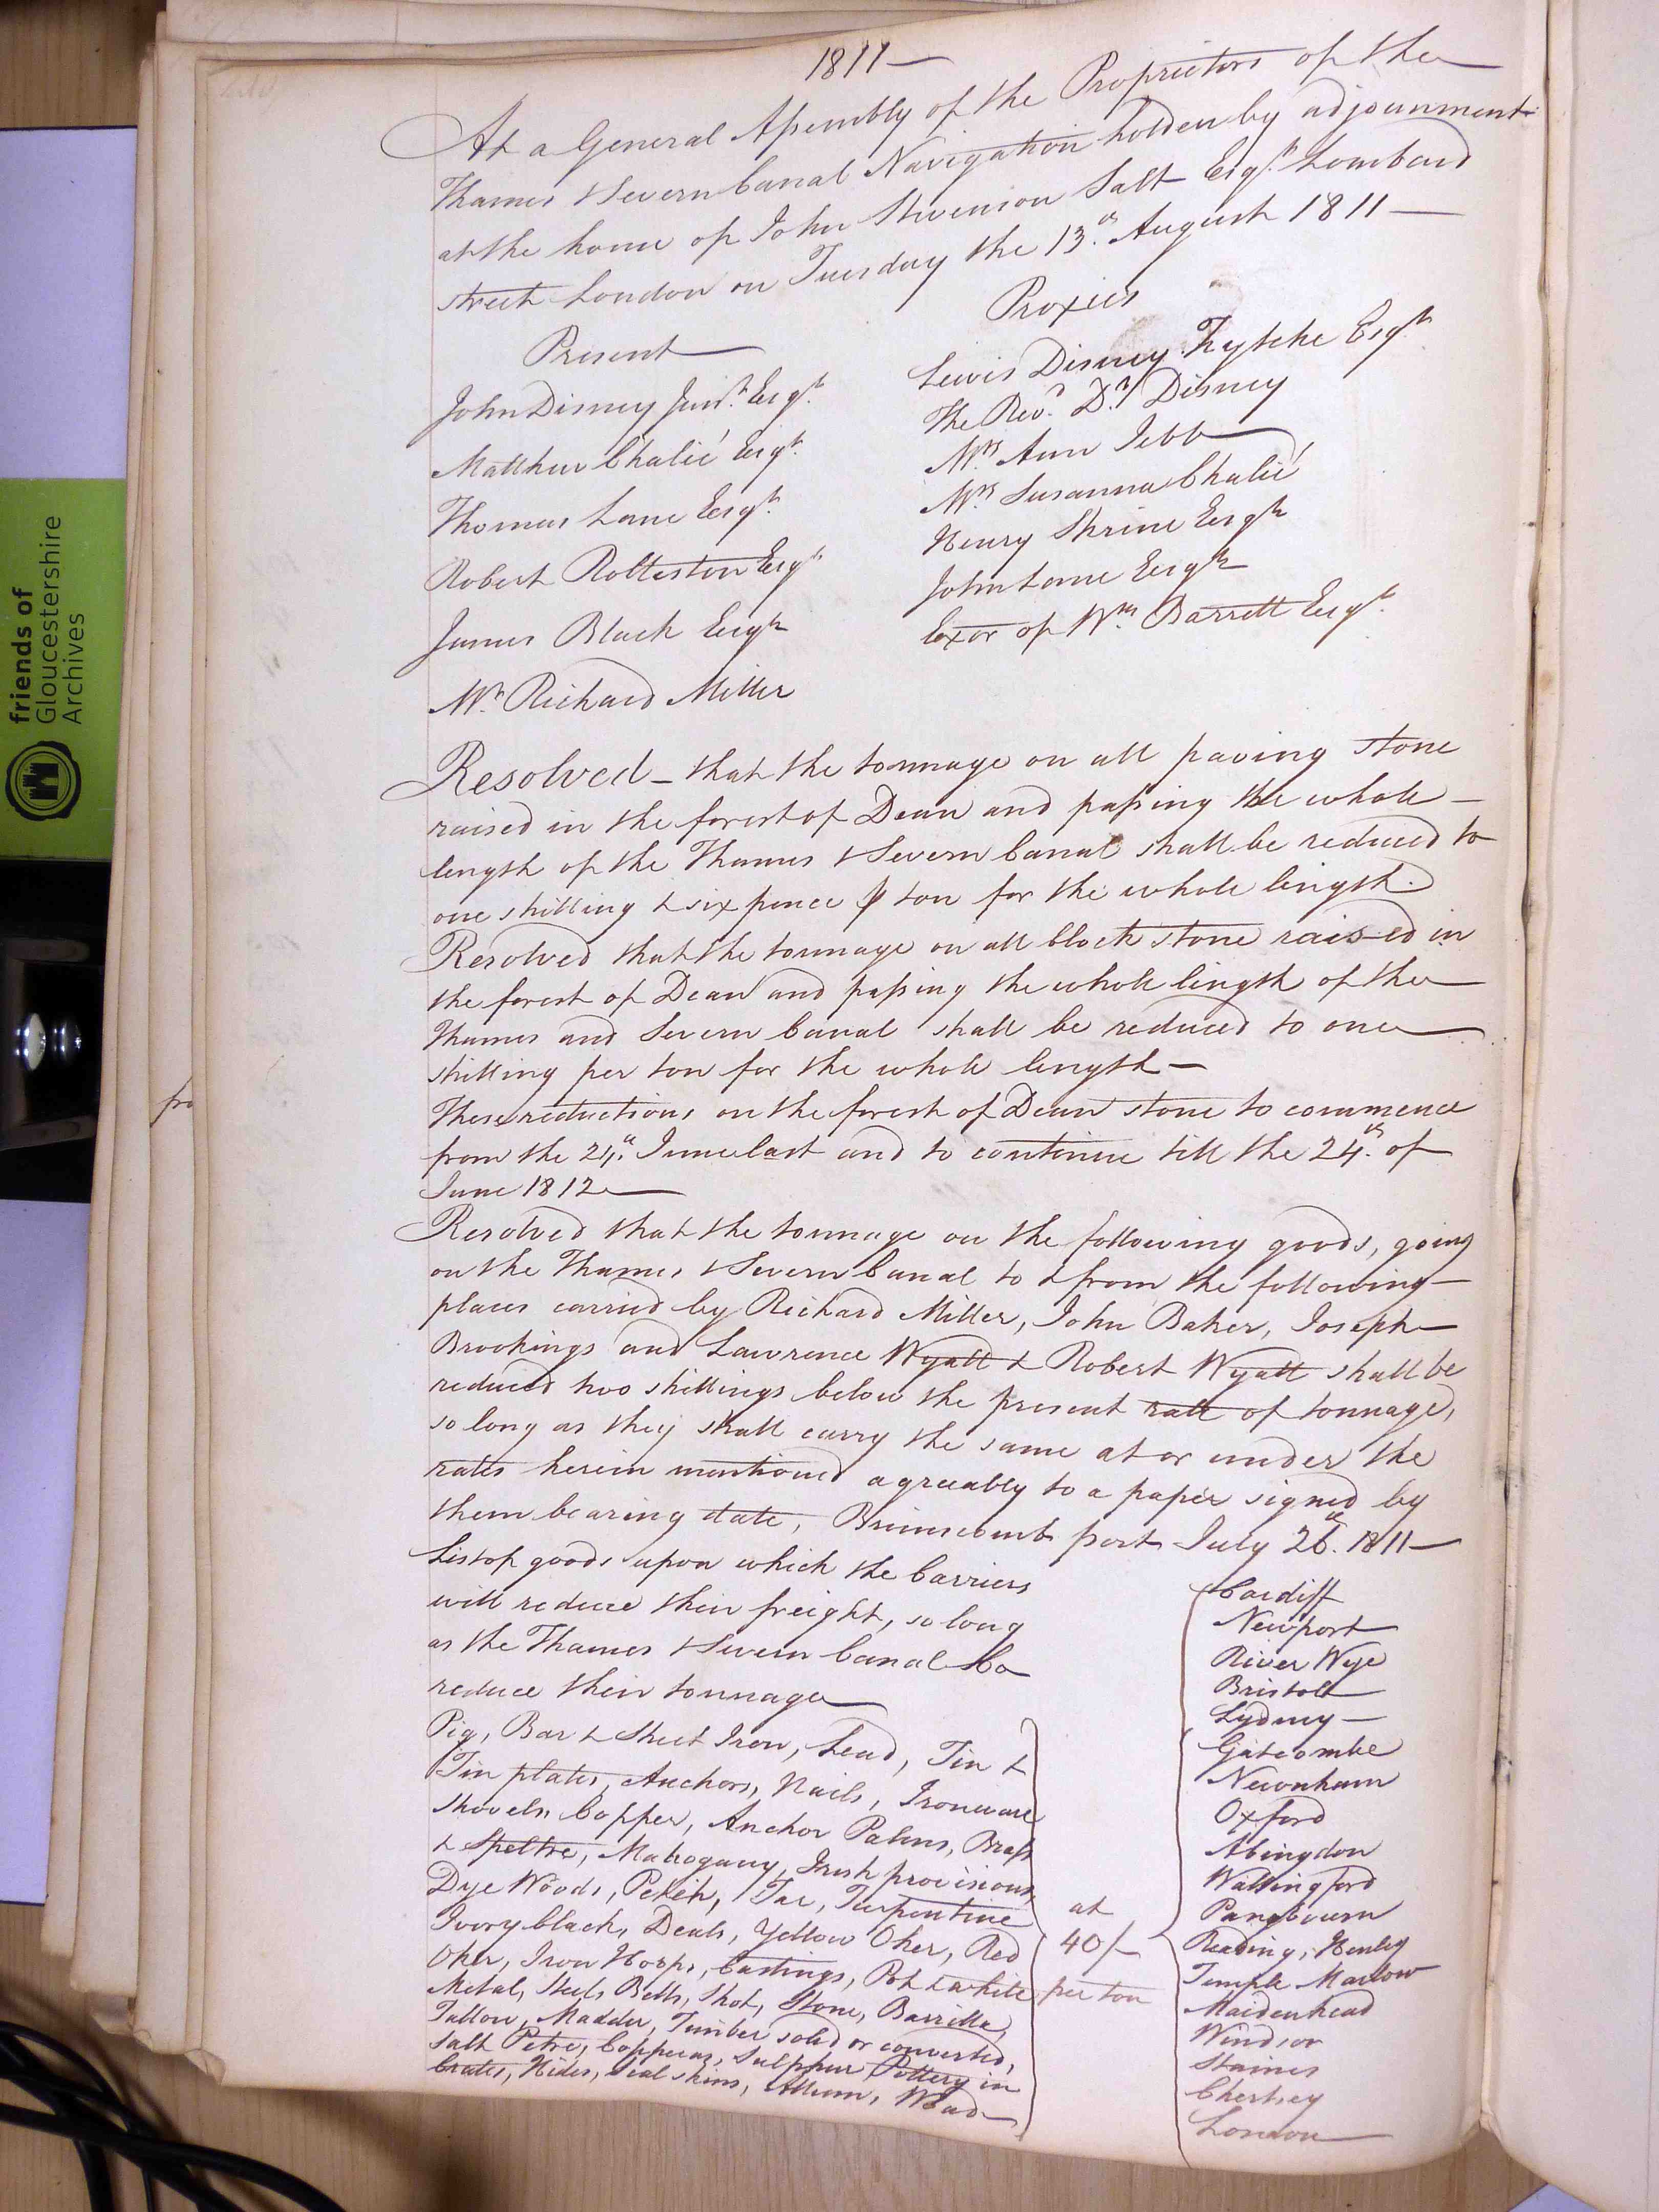 1811 —
At a General Assembly of the Proprietors of the
Thames & Severn Canal Navigation holden by adjournment
at the house of John Stevenson Salt Esqr. Lombard
street London on Tuesday the 13.th August 1811 —
Present
John Disney Junr. Esqr.
Matthew Chalié Esqr.
Thomas Lane Esqr.
Robert Rolleston Esqr
James Black Esqr
Mr. Richard Miller
Proxies
Lewis Disney Ffytche Esqr.
The Revd. Dr. Disney
Mrs Ann Jebb
Mrs. Susanna Chalié
Henry Skrine Esqr
John Lane Esqr
Exor of Wm. Barrett Esqr.
Resolved — that the tonnage on all paving stone
raised in the forest of Dean and passing the whole —
length of the Thames & Severn Canal shall be reduced to
one shilling & sixpence ⅌ ton for the whole length.
Resolved that the tonnage on all block stone raised in
the forest of Dean and passing the whole length of the
Thames and Severn Canal shall be reduced to one
shilling per ton for the whole length —
These reductions on the forest of Dean stone to commence
from the 24.th June last and to continue till the 24.th of
June 1812 —
Resolved that the tonnage on the following goods, going
on the Thames & Severn Canal to & from the following —
places carried by Richard Miller, John Baker, Joseph
Brookings and Lawrence Wyatt & Robert Wyatt shall be
reduced two shillings below the present rate of tonnage,
so long as they shall carry the same at or under the
rates herein mentioned agreeably to a paper signed by
them bearing date, Brimscomb port July 26.th 1811 —
List of goods upon which the Carriers
will reduce their freight, so long
as the Thames & Severn Canal Co
reduce their tonnage
Pig, Bar & Sheet Iron, Lead, Tin &
Tin plates, Anchors, Nails, Ironware
Shovels, Copper, Anchor Palms, Brass
& Speltre, Mahogany, Irish provisions,
Dye Woods, Pitch, Tar, Turpentine
Ivory black, Deals, Yellow Oker, Red
Oker, Iron Hoops, Castings, Pot & white
Metal, Steel, Bells, Shot, Stone, Barrilla,
Tallow, Madder, Timber solid or converted,
Salt Petre, Copperas, Sulphur Pottery in
Crates, Hides, Seal skins, Allum, Woad —
at
40/-
per ton
Cardiff
Newport
River Wye
Bristol
Lydney —
Gatcombe
Newnham
Oxford
Abingdon
Wallingford
Pangbourn
Reading, Henley
Temple Marlow
Maidenhead
Windsor
Staines
Chertsey
London
fro
friends of
Gloucestershire
Archives